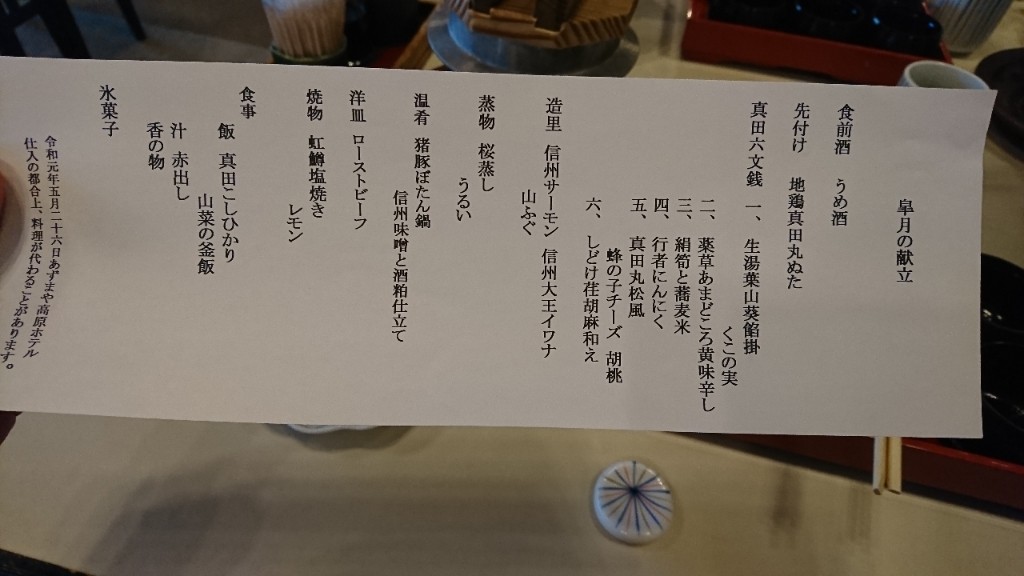 皐月の献立
食前酒 うめ酒
先付け 地鶏真田丸ぬた
真田六文銭 一、 生湯葉山葵餡掛
くこの実
二、 薬草あまどころ黄味辛し
三、 絹筍と蕎麦米
四、 行者にんにく
五、 真田丸松風
蜂の子チーズ 胡桃
六、 しどけ荏胡麻和え
造里 信州サーモン 信州大王イワナ
山ふぐ
蒸物 桜蒸し
うるい
温肴 猪豚ぼたん鍋
信州味噌と酒粕仕立て
洋皿 ローストビーフ
焼物 虹鱒塩焼き
レモン
食事
飯 真田こしひかり
山菜の釜飯
汁 赤出し
香の物
氷菓子
令和元年五月二十六日あずまや高原ホテル
仕入の都合上、料理が代わることがあります。